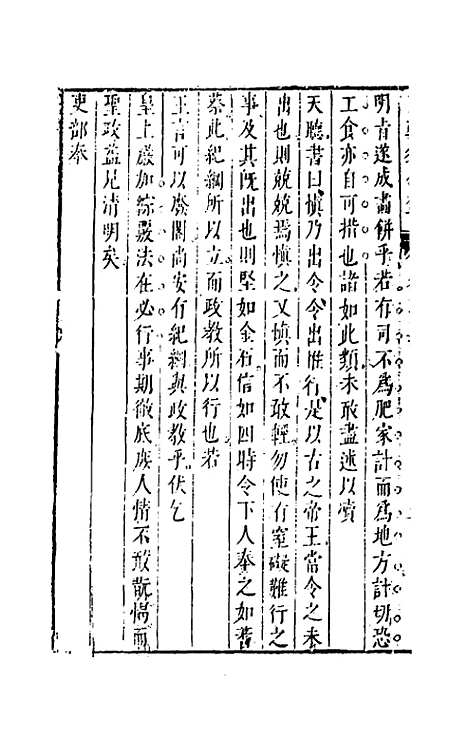 明旨遂成畫餅乎若有司不爲肥家計而爲地方計切恐
工食亦自可措也諸如此類未敢盡述以凟
天聽書曰慎乃出令令出惟行是以古之帝王當令之未
出也則兢兢焉慎之又慎而不敢輕勿使有窒礙難行之
事及其既出也則堅如金石信如四時令下人奉之如蓍
蔡此紀綱所以立而政教所以行也若
王言可以廢閣尚安有紀綱與政教乎伏乞
皇上嚴加綜覈法在必行事期徹底庶人情不敢翫愒而
聖政益見清明矣
吏部奉